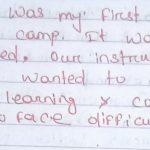 was my first
camp. It wo
ed. Our instru
wanted to
learning & co
o face difficu